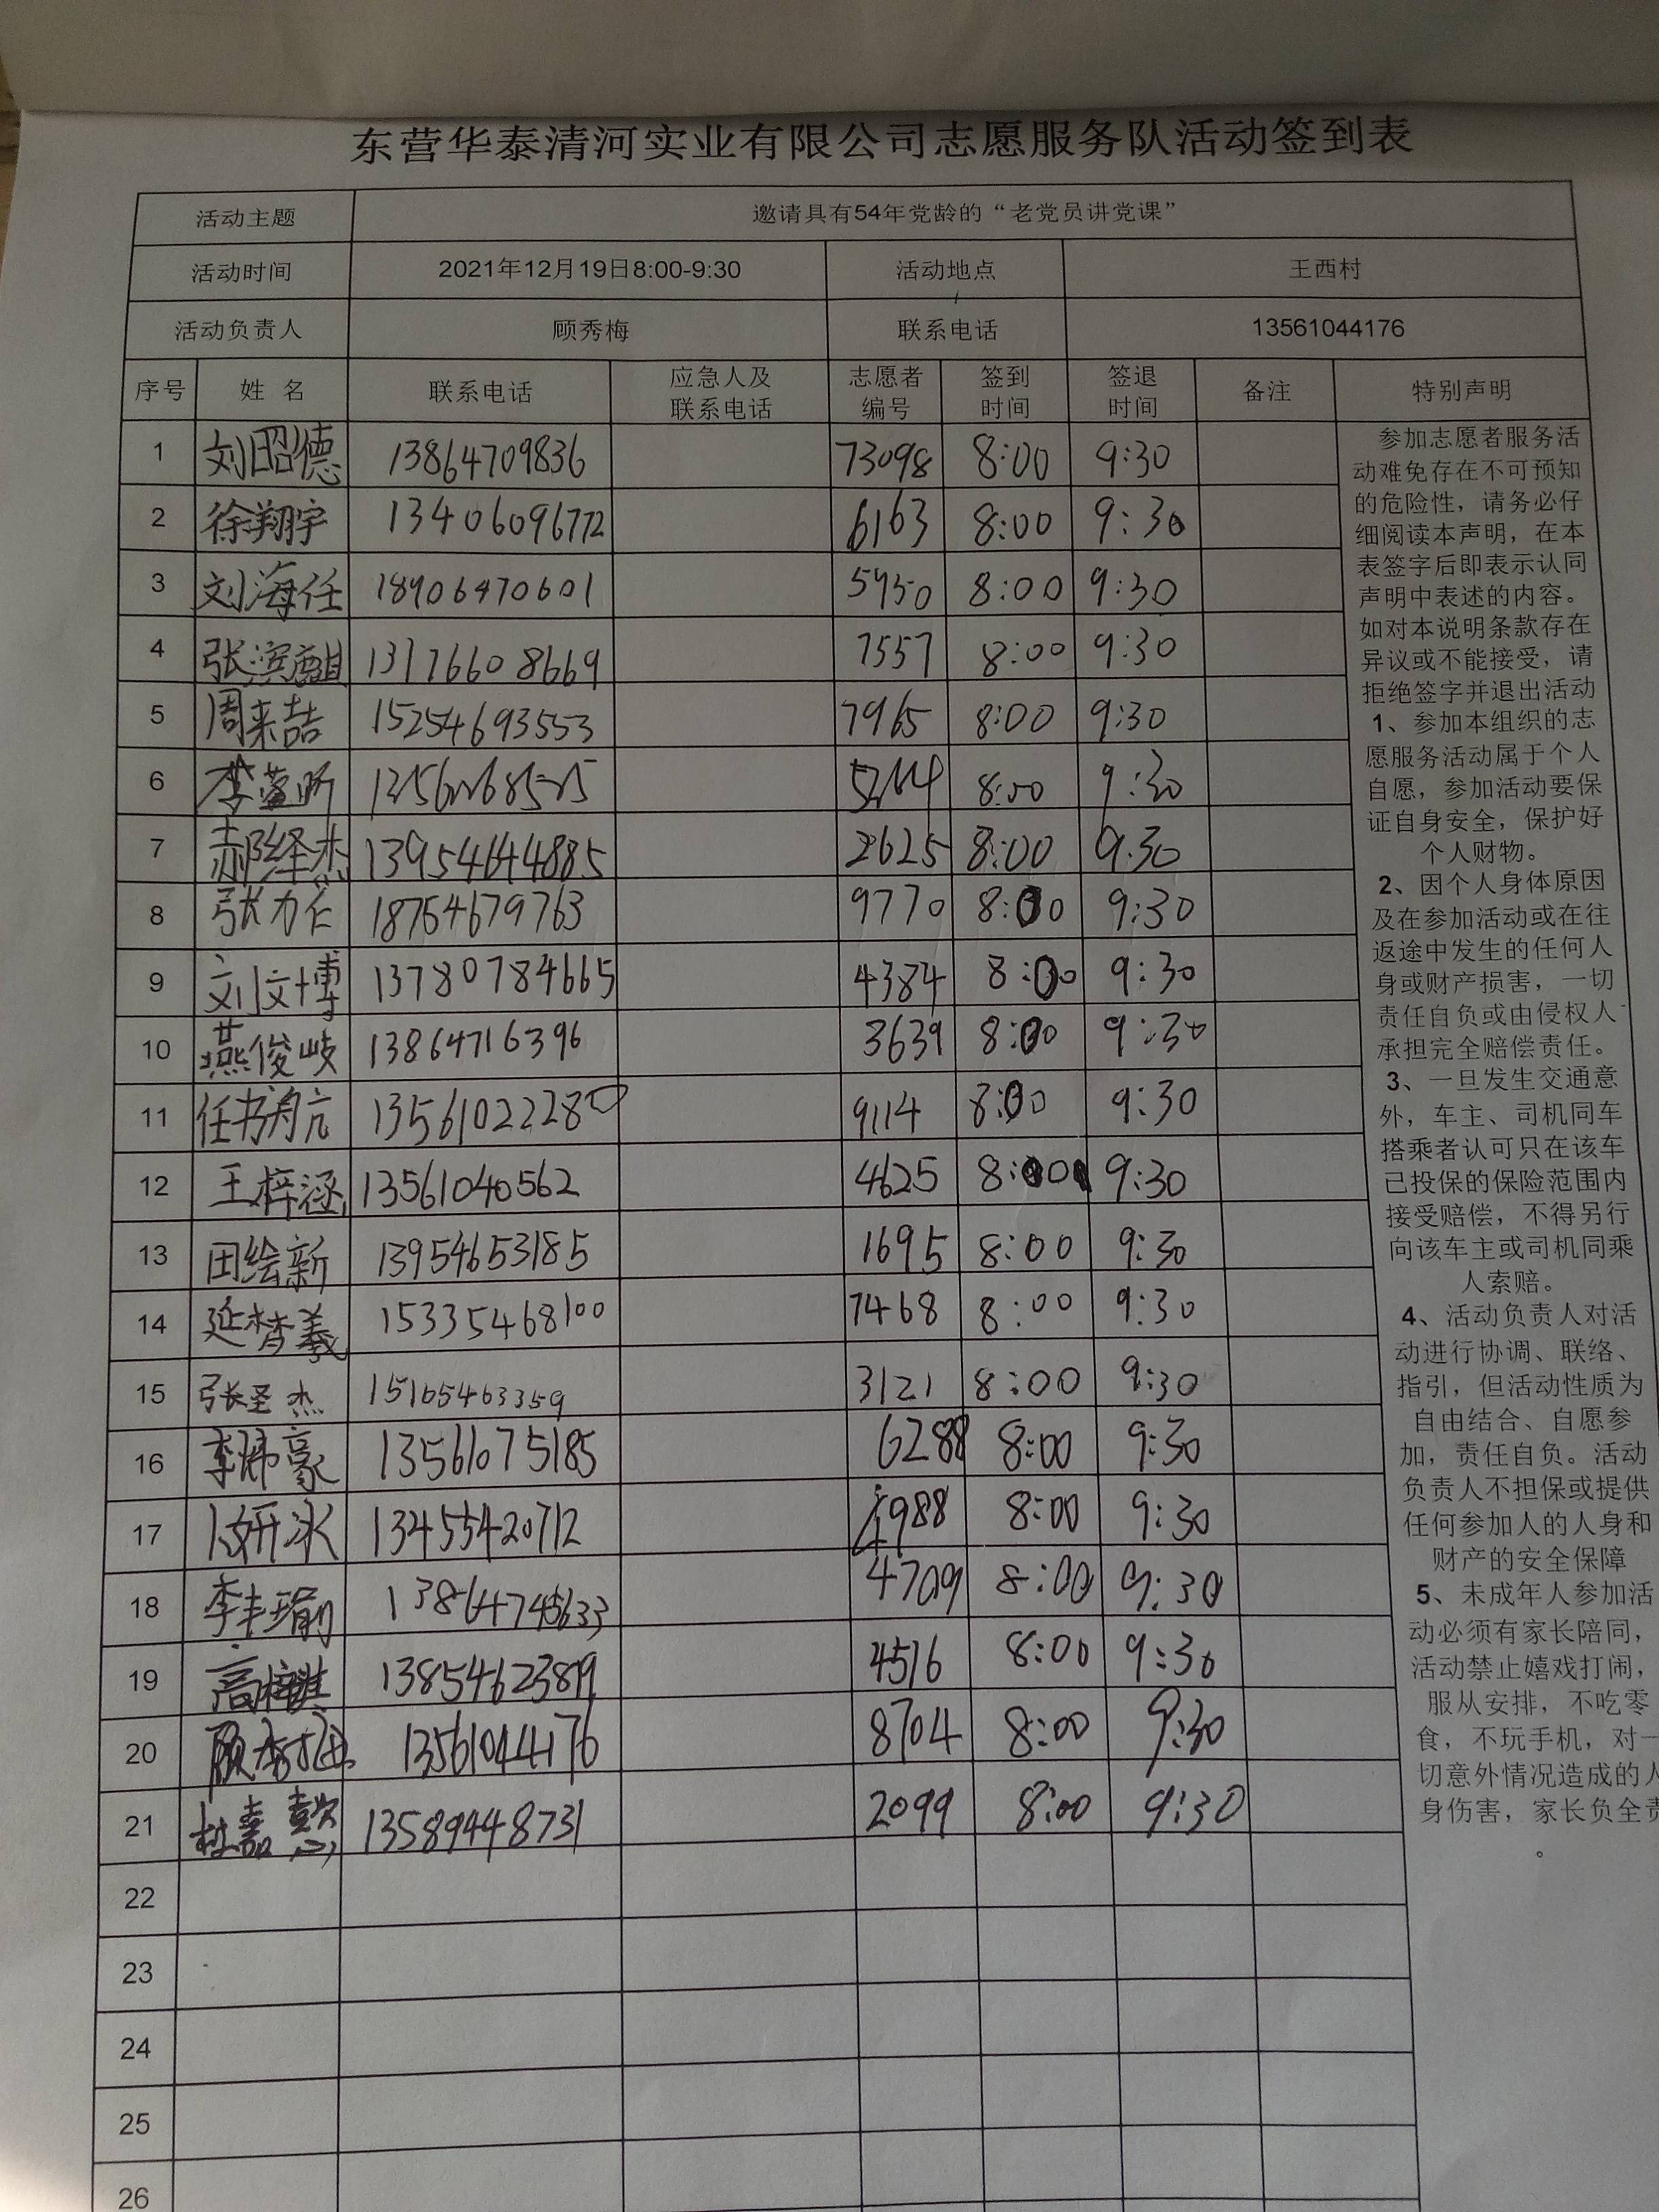 东营华泰清河实业有限公司志愿服务队活动签到表
活动主题 邀请具有54年党龄的“老党员讲党课”
活动时间 2021年12月19日8:00-9:30 活动地点 王西村
活动负责人 顾秀梅 联系电话 13561044176
序号 姓 名 联系电话 应急人及联系电话 志愿者编号 签到时间 签退时间 备注 特别声明
1 刘昭德 13864709836 73098 8:00 9:30
2 徐翔宇 13406096772 6163 8:00 9:30
3 刘海任 18906470601 5950 8:00 9:30
4 张滨麒 13176608669 7557 8:00 9:30
5 周来喆 15254693553 7965 8:00 9:30
6 8:00 9:30
7 郝绎杰 13954644885 2625 8:00 9:30
8 张力仁 18754679763 9770 8:00 9:30
9 刘文博 13780784665 4384 8:00 9:30
10 燕俊岐 13864716396 3639 8:00 9:30
11 任书 13561022280 9114 8:00 9:30
12 王梓涵 13561040562 4625 8:00 9:30
13 田绘新 13954653185 1695 8:00 9:30
14 延楷義 15335468100 7468 8:00 9:30
15 张圣杰 15165463359 3121 8:00 9:30
16 李沛豪 13561075185 6288 8:00 9:30
17 13455420712 4988 8:00 9:30
18 4709 8:00 9:30
19 高梓淇 13854623819 4516 8:00 9:30
20 顾秀梅 13561044176 8704 8:00 9:30
21 杜嘉懿 13589448731 2099 8:00 9:30
22
23
24
25
26
参加志愿者服务活
动难免存在不可预知
的危险性，请务必仔
细阅读本声明，在本
表签字后即表示认同
声明中表述的内容。
如对本说明条款存在
异议或不能接受，请
拒绝签字并退出活动
1、参加本组织的志
愿服务活动属于个人
自愿，参加活动要保
证自身安全，保护好
个人财物。
2、因个人身体原因
及在参加活动或在往
返途中发生的任何人
身或财产损害，一切
责任自负或由侵权人
承担完全赔偿责任。
3、一旦发生交通意
外，车主、司机同车
搭乘者认可只在该车
己投保的保险范围内
接受赔偿，不得另行
向该车主或司机同乘
人索赔。
4、活动负责人对活
动进行协调、联络、
指引，但活动性质为
自由结合、自愿参
加，责任自负。活动
负责人不担保或提供
任何参加人的人身和
财产的安全保障
5、未成年人参加活
动必须有家长陪同，
活动禁止嬉戏打闹，
服从安排，不吃零
食，不玩手机，对一
切意外情况造成的人
身伤害，家长负全责
。